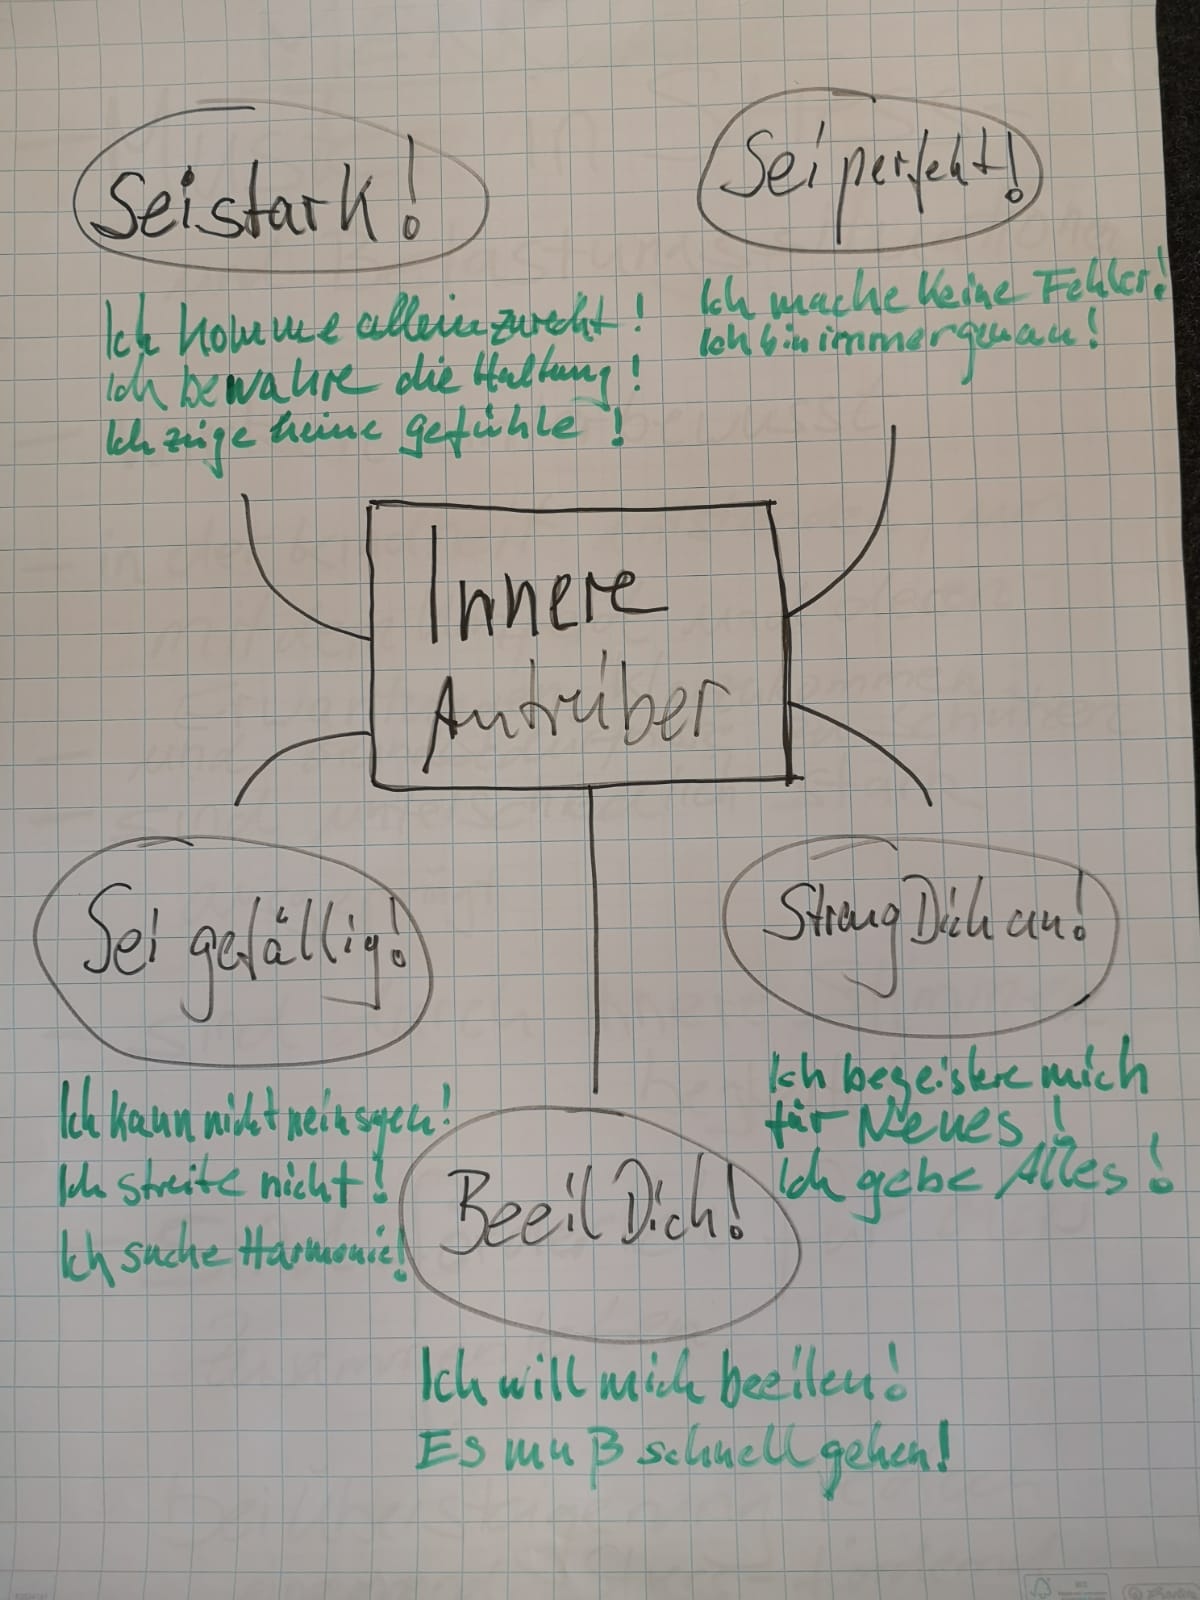 Sei stark!
Ich komme allein zurecht!
Ich bewahre die Haltung!
Ich zeige keine gefühle!
Sei perfekt!
Ich mache keine Fehler!
Ich bin immer genau!
Innere
Antreiber
Sei gefällig!
Ich kann nicht nein sagen!
Ich streite nicht!
Ich suche Harmonie!
Streng Dich an!
Ich begeistre mich
für Neues!
Ich gebe Alles!
Beeil Dich!
Ich will mich beeilen!
Es muß schnell gehen!